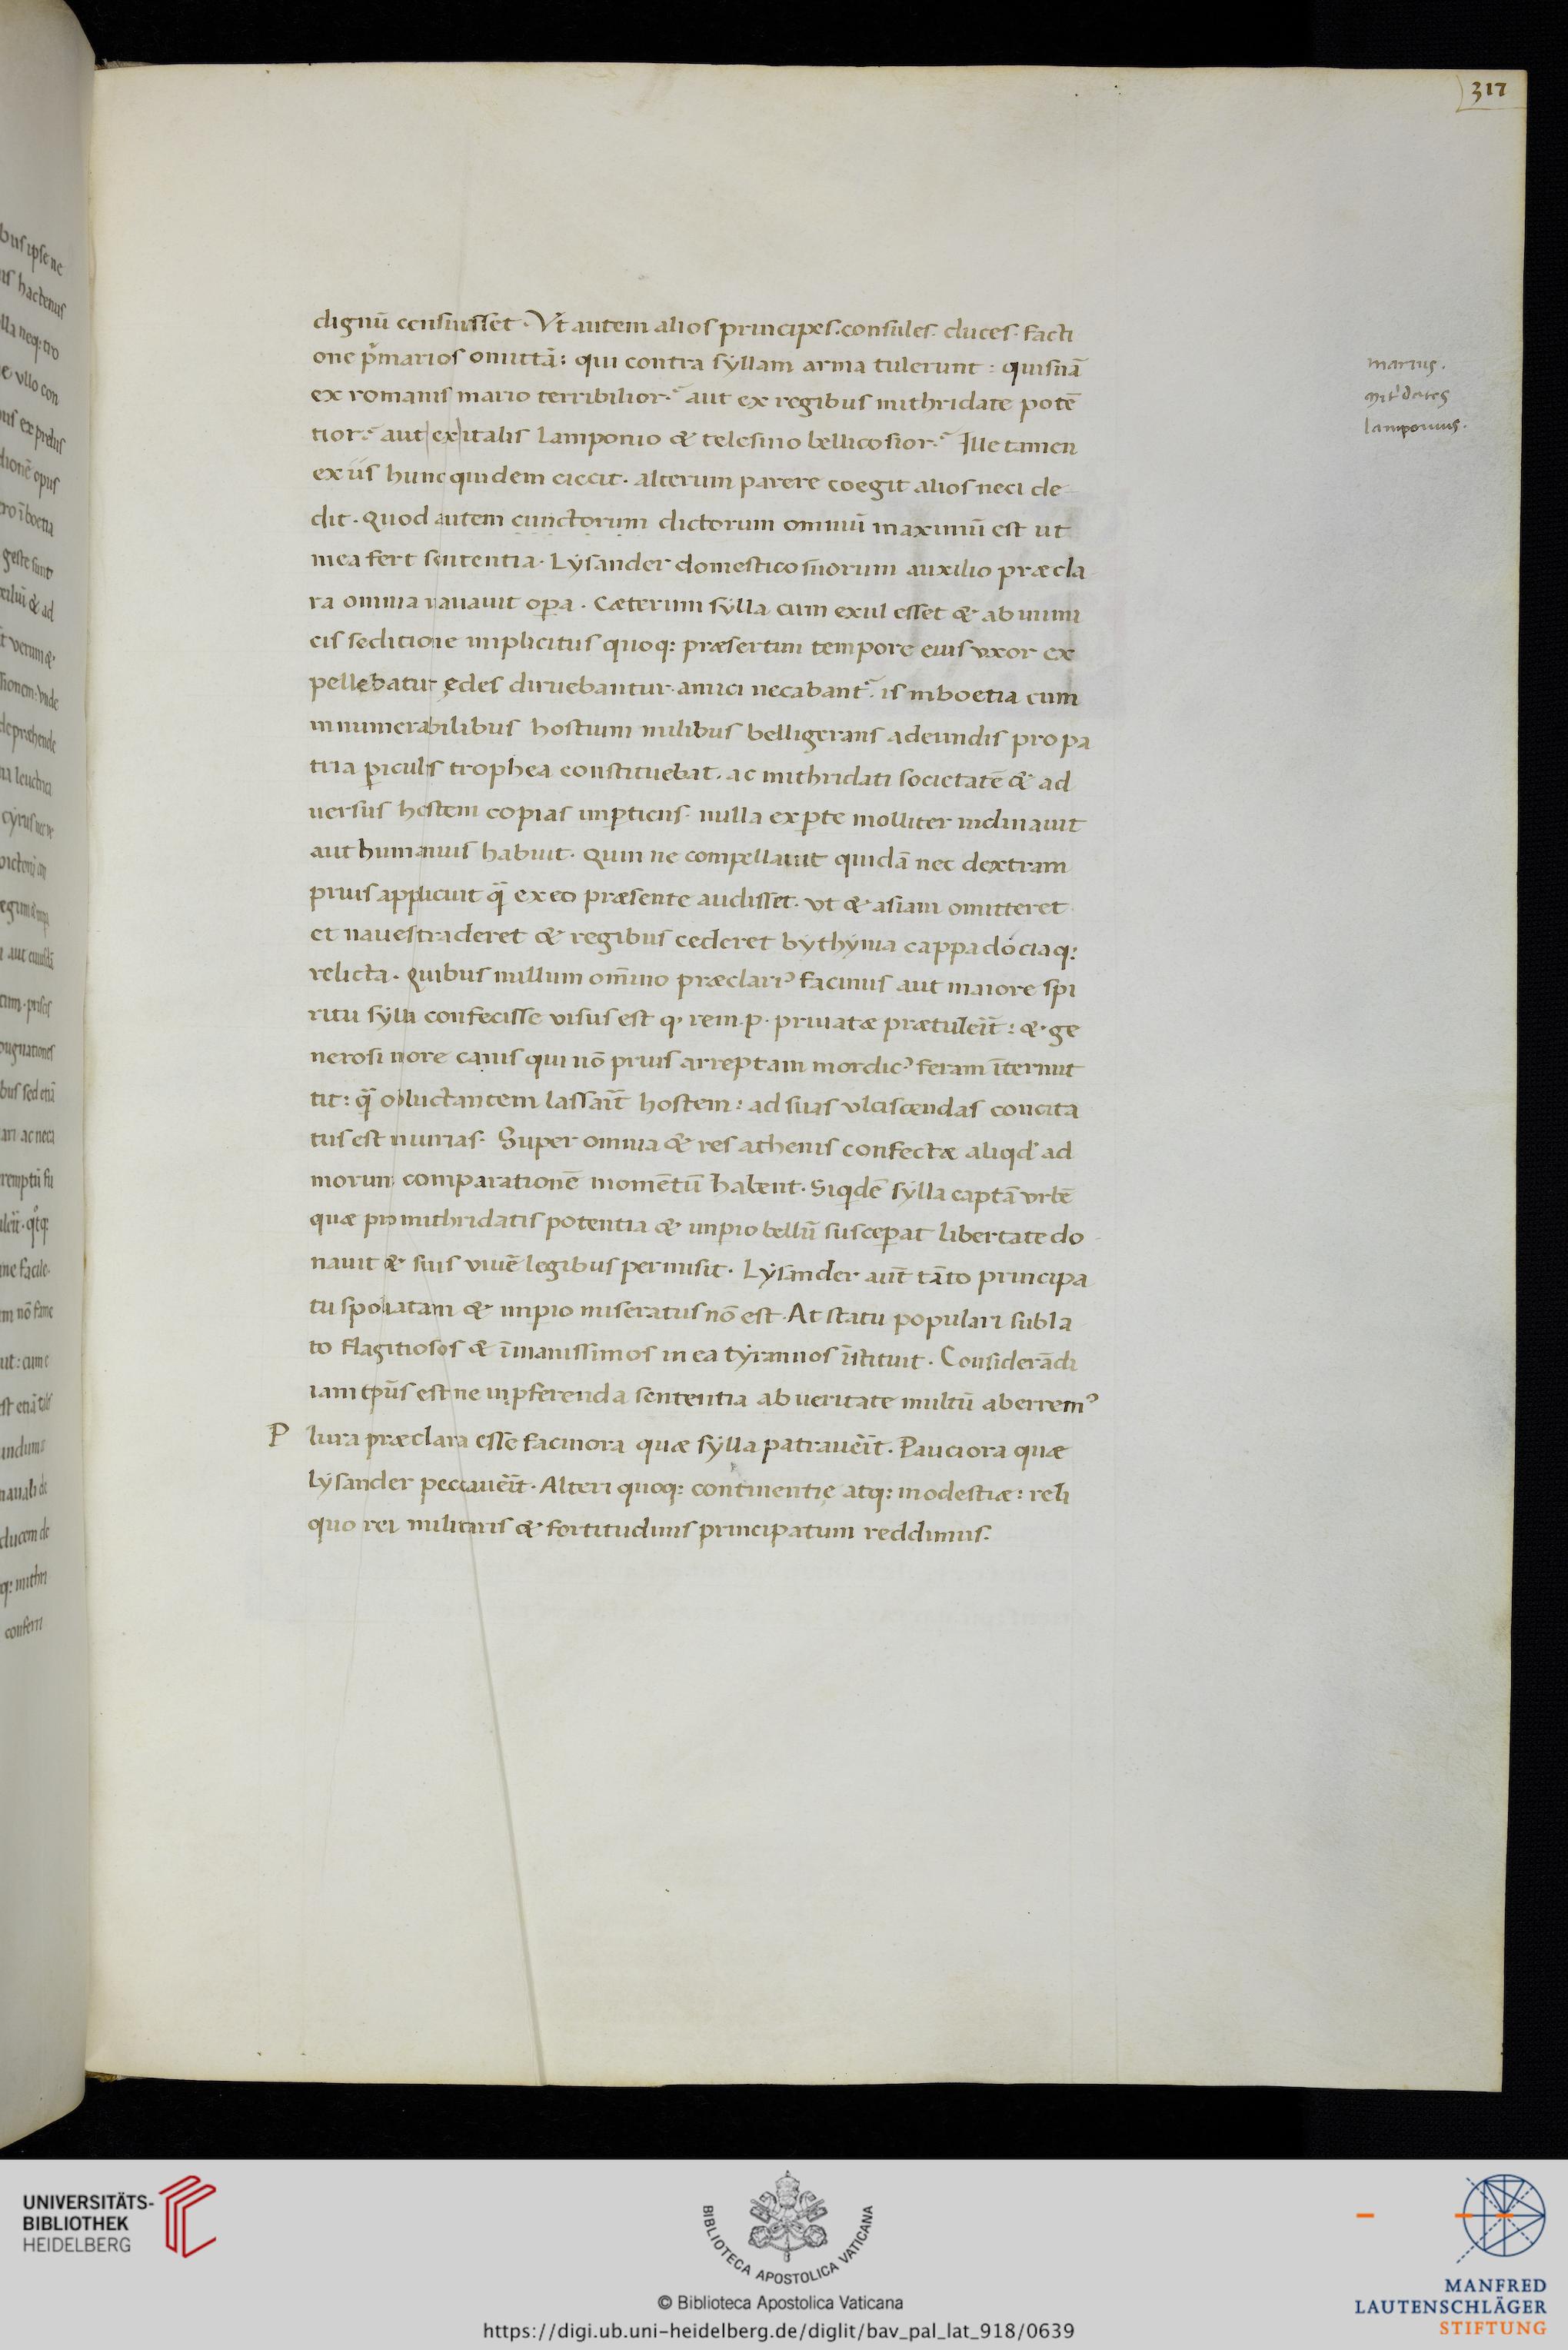 317
dignū censuisset. Vt autem alios principes. consules. duces. facti
one pͥmarios omittā: qui contra syllam arma tulerunt: quisnā
ex romanis mario terribilior? aut ex regibus mithridate potē
tior? aut ex italis lamponio & telesino bellicosior? Ille tamen
ex iis hunc quidem eiecit. alterum parere coegit alios neci de
dit. Quod autem cunctorum dictorum omniū maximū est ut
mea fert sententia. Lysander domestico suorum auxilio præcla
ra omnia nauauit oꝑa. Cæterum sylla cum exul esset & ab inimi
cis seditione implicitus quoq: præsertim tempore eius vxor ex
pellebatur ędes diruebantur. amici necabant᷑. is in boetia cum
innumerabilibus hostium milibus belligerans adeundis pro pa
tria ꝑiculis trophea constituebat. ac mithridati societatē & ad
uersus hostem copias imꝑtiens. nulla ex ꝑte molliter inclinauit
aut humanius habuit. Quin ne compellauit quidā nec dextram
prius applicuit q̄ ex eo præsente audisset. vt & asiam omitteret
et naues traderet & regibus cederet bythynia cappadociaq:
relicta. Quibus nullum om̄ino præclariꝰ facinus aut maiore spi
ritu sylla confecisse visus est q. rem.p. priuatæ prætuleīt: & ge
nerosi more canis qui nō prius arreptam mordicꝰ feram īternut
tit: q̄ obluctantem lassaīt hostem: ad suas vlciscendas concita
tus est iniurias. Super omnia & res athenis confectæ aliqd' ad
morum comparationē momētū habent. Siqdē sylla captā vrbē
quæ pro mithridatis potentia & imꝑio bellū susceꝑat libertate do
nauit & suis viuē legibus permisit. Lysander aūt tāto principa
tu spoliatam & imꝑio miseratus nō est. At statu populari subla
to flagitiosos & īmanissimos in ea tyrannos īstituit. Considerādi
iam tp̄us est ne in ꝓferenda sententia ab ueritate multū aberremꝰ
P lura præclara esse facinora quæ sylla patraueīt. Pauciora quæ
lysander peccaueīt. Alteri quoq: continentię atq: modestiæ: reli
quo rei militaris & fortitudinis principatum reddimus.
marius.
mit'dates
lamponius.
UNIVERSITÄTS-
BIBLIOTHEK
HEIDELBERG
BIBLIOTECA APOSTOLICA VATICANA
© Biblioteca Apostolica Vaticana
https://digi.ub.uni-heidelberg.de/diglit/bav_pal_lat_918/0639
MANFRED
LAUTENSCHLÄGER
STIFTUNG